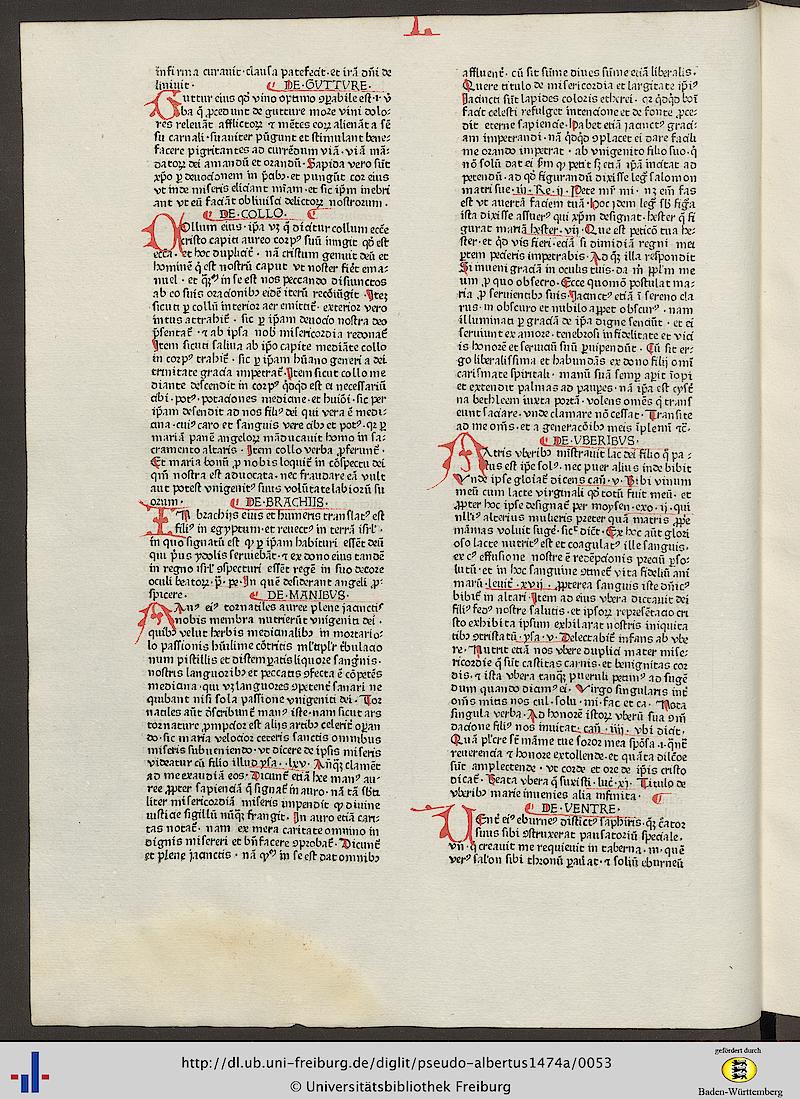 L
infirma curauit· clausa patefecit· et irā dn̄i de
liniuit· DE·GVTTVRE·
Guttur eius qd' vino optimo ꝯꝑabile est· i· v̄
ba q̄ ꝓcedunt de gutture more vini dolo⸗
res releuāt afflictoꝝ ⁊ mētes eoꝝ alienāt a sē
su carnali· suauiter pūgunt et stimulant bene⸗
facere pigritantes ad currēdum viā· viā mā⸗
datoꝝ dei amandū et orandū· Sapida vero sūt
xp̄o ꝓ deuocionem in p̄cibꝰ· et pungūt cor eius
vt inde miseris eliciant mīam· et sic ip̄m inebri
ant vt eū faciāt obliuisci delictoꝝ nostrorum·
DE·COLLO·
COllum eius· ip̄a vꝫ q̄ dicitur collum ecc̄e
cristo capiti aureo corpꝰ suū iungit qd' est
ecc̄a· et hoc duplicit̄· nā cristum genuit deū et
hominē q̄ est nostrū caput vt noster fiēt ema⸗
nuel· et q̄ꝫꝰ in se est nos peccando disiunctos
ab eo suis oracionibꝰ eidē iterū recōiūgit· Itē
sicuti ꝑ collū interior aer emittit̄· exterior vero
intus attrahit̄· sic ꝑ ip̄am deuocio nostra deo
p̄sentat̄· ⁊ ab ipsa nob̄ misericordia redonat̄
Item sicuti saliua ab ip̄o capite mediāte collo
in corpꝰ trahit̄· sic ꝑ ip̄am hūano generi a dei
trinitate gracia impetrat̄· Item sicut collo me
diante descendit in corpꝰ q̄dqd est ei necessariū
cibi· potꝰ· potaciones medicine· et huiōi· sic per
ip̄am descendit ad nos filiꝰ dei qui vera ē medi
cina· cuiꝰ caro et sanguis vere cibꝰ et potꝰ· qꝛ ꝑ
mariā panē angeloꝝ māducauit homo in sa⸗
cramento altaris· Item collo verba ꝓferunt̄·
Et maria bonū ꝓ nobis loquit̄ in cōspectu dei
qm̄ nostra est aduocata· nec fraudare eā vult
aut potest vnigenitꝰ suus volūtate labiorū su
orum· DE·BRACHIIS·
IN brachijs eius et humeris translatꝰ est
filiꝰ in egyptum· et reuectꝰ in terrā isrl'·
in quo signatū est qꝰ ꝑ ip̄am habituri essēt deū
qui p̄us ydolis seruiebāt· ⁊ ex dono eius tandē
in regno isrl' ꝯspecturi essēt regē in suo decore
oculi beatoꝝ· p̄· pe· In quē desiderant angeli ꝓ⸗
spicere· DE·MANIBVS·
MAnꝰ eiꝰ tornatiles auree plene iacinctis
nobis membra nutrierūt vnigeniti dei·
quibꝰ velut herbis medicinalibꝰ in mortario⸗
lo passionis hūilime cōtritis ml'tiplr ēbulacio
num pistillis et distemꝑatis liquore sangnīs·
nostris languoribꝰ et peccatis ꝯfecta ē cōpetēs
medicina· qui vꝫ languores ꝯpetent̄ sanari ne
quibant nisi sola passione vnigeniti dei· Tor
natiles aūt d'scribunt̄ manꝰ iste· nam sicut ars
tornature ꝓmpcior est alijs artibꝰ celerit̄ oꝑan
do· sic maria velocior ceteris sanctis omnibus
miseris subueniendo· vt dicere de ipsis miseris
videatur cū filio illud ysa· lxv· Anq̄ꝫ clament
ad me exaudiā eos· Dicunt̄ etiā hee manꝰ au⸗
ree ꝓpter sapienciā q̄ signat̄ in auro· nā tā sb'ti
liter misericordiā miseris impendit qꝰ diuine
iusticie sigillū nūq̄ꝫ frangit· In auro eciā cari⸗
tas notat̄· nam ex mera caritate omnino in
dignis misereri et bn̄facere ꝯprobat̄· Dicunt̄
et plene iacinctis· nā qꝰ in se est dat omnibꝰ
affluent̄· cū sit sūme diues sūme etiā liberalis·
Quere titulo de misericordia et largitate ip̄iꝰ
Iacincti sūt lapides coloris etherei· qꝛ q̄dqd boī
facit celesti refulget intencione et de fonte ꝓce⸗
dit eterne sapiencie· Habet etiā iacinctꝰ graci⸗
am impetrandi· nā q̄dqd ꝯplacet ei dare facili
me orando impetrat· ab vnigenito filio suo· q̄
nō solū dat ei p̄m qꝰ petit sꝫ etiā ip̄ā incitat ad
petendū· ad qd' figurandū dixisse leg̃ salomon
matri sue· iij· Re· ij· Pete mr̄ mi· nꝫ em̄ fas
est vt auertā faciem tuā· Hoc idem leg̃ sb̄ figa
ista dixisse assuerꝰ qui xp̄m designat· hester q̄ fi
gurat mariā hester· vij· Que est peticō tua he⸗
ster· et qd' vis fieri· eciā si dimidiā regni mei
ꝑtem pecieris impetrabis· Ad qꝫ illa respondit
Si inueni graciā in oculis tuis· da m̄ pp̄lm me
um ꝓ quo obsecro· Ecce quomō postulat ma⸗
ria ꝓ seruientibꝰ suis· Iacinctꝰ etiā ī sereno cla
rus· in obscuro et nubilo apꝑet obscurꝰ· nam
illuminati ꝑ graciā de ip̄a digne senciūt· et ei
seruiunt ex amore· tenebrosi infidelitate et vici
is honorē et seruiciū suū ꝑuipendūt· Cū sit er⸗
go liberalissima et habundās ex dono filij om̄i
carismate spiritali· manū suā semꝑ aꝑit īopi
et extendit palmas ad pauꝑes· nā ip̄a est cyst̄
na bethleem iuxta portā· volens omēs q̄ trans
eunt saciare· vnde clamare nō cessat· Transite
ad me oms̄· et a generaciōibꝰ meis īplemī ⁊c̄·
DE·VBERIBVS·
MAtris vberibꝰ mīstrauit lac dei filio q̄ pa⸗
stus est ip̄e solꝰ· nec puer alius inde bibit
Vnde ipse gloiat̄ dicens can̄· v· Bibi vinum
meū cum lacte virginali qd' totū fuit meū· et
ꝓpter hoc ipse designat̄ per moysen· exo· ij· qui
nlliꝰ alterius mulieris preter quā matris ꝓpe
māmas voluit suge͂· sic' dict̄· Ex hoc aūt glori
oso lacte nutritꝰ est et coagulatꝰ ille sanguis·
ex cꝰ effusione nostre ē redēpcionis preciū ꝑso⸗
lutū· et in hoc sanguine ꝯtinet̄ vita fideliū ani
marū· leuit̄· xvij· ꝓpterea sanguis iste d'nicꝰ
bibit̄ in altari· Item ad eius vbera dictauit dei
filiꝰ fedꝰ nostre salutis· et ipsoꝝ represētacio cri
sto exhibita ipsum exhilarat nostris iniquita
tibꝰ ꝯtristatū· ysa· v· Delectabit̄ infans ab vbe
re· Nutrit etiā nos vbere duplici mater mise⸗
ricordie q̄ sūt castitas carnis· et benignitas cor
dis· ⁊ ista vbera tanq̄ꝫ pueruli petimꝰ ad sugē
dum quando dicimꝰ ei· Virgo singularis int̄
om̄s mitis nos cul· solu· mi· fac et ca· Nota
singula verba· Ad honorē istoꝝ vberū sua ꝯm̄
dacione filiꝰ nos inuitat· can̄· iiij· vbi dicit·
Quā pl'cre st̄ māme tue soror mea spōsa· i· qn̄t̄
reuerencia ⁊ honore extollende· et quāta dilc̄oe
sūt amplectende· vt corde et ore de ip̄is cristo
dicat̄· Beata vbera q̄ suxisti· luc̄· xi· Titulo de
vberibꝰ marie inuenies alia infinita·
DE·VENTRE·
VEnt̄ eiꝰ eburneꝰ distīctꝰ saphiris· qꝫ c̄ator
suus sibi ꝯstruxerat pausatoriū speciale·
vn̄· q̄ creauit me requieuit in taberna· m· quē
verꝰ sal'on sibi thronū ꝑauat· ⁊ soliū eburneū
http://dl.ub.uni-freiburg.de/diglit/pseudo-albertus1474a/0053
© Universitätsbibliothek Freiburg
gefördert durch
Baden-Württemberg